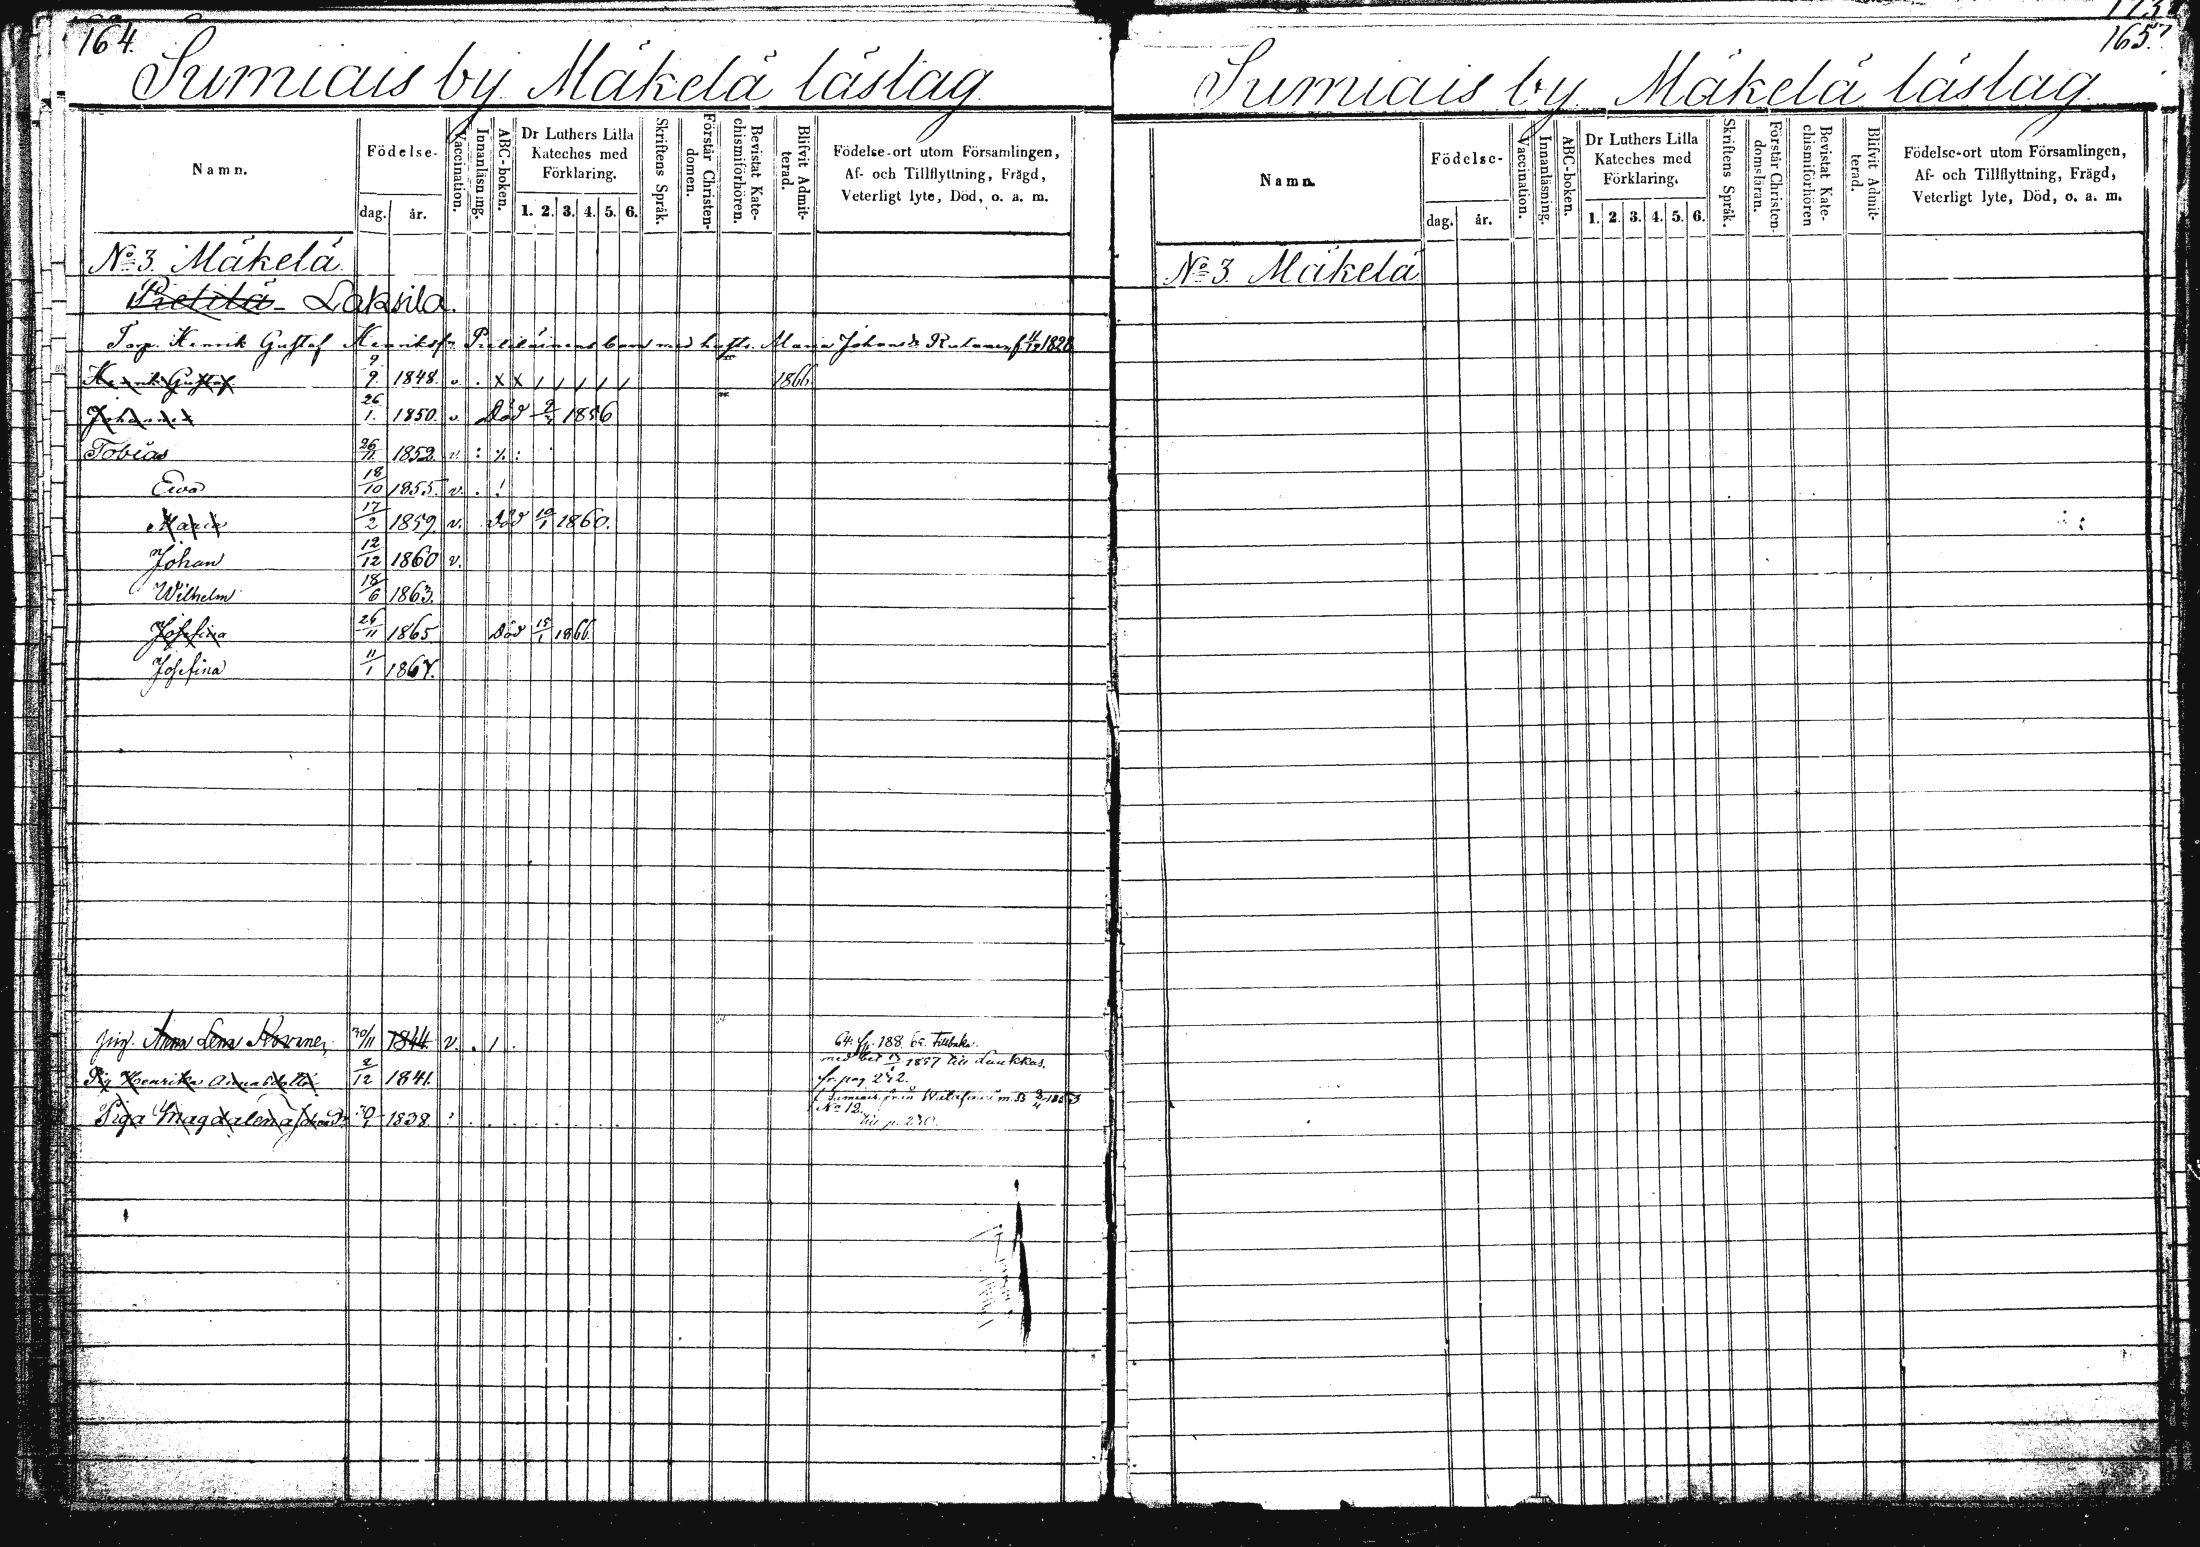 164.
Sumiais by Mäkelä läslag
Namn.
Födelse-
dag. år.
Vaccination.
Innanläsning.
ABC-boken.
Dr Luthers Lilla
Kateches med
Förklaring.
1. 2. 3. 4. 5. 6.
Skriftens Språk.
Förstår Christen-
domen.
Bevistat Kate-
chismiförhören.
Blifvit Admit-
terad.
Födelse-ort utom Församlingen,
Af- och Tillflyttning, Frägd,
Veterligt lyte, Död, o. a. m.
No 3. Mäkelä
Pietilä - Laksila.
Torp. Henrik Gustaf Henriksson Pietiläinens barn med hustr. Maria Johansdr 1828
Henrik Gustaf 9/9 1848. v. . x x / / / / / 1866
Johannes 26/1 1850. v. Död 1856
Tobias 26/11 1852. v. : % :
Eva 18/10 1855. v. . !
Maria 17/2 1859. v. Död 19/1 1860.
Johan 12/12 1860 v.
Wilhelm 18/6 1863.
Josefina 26/11 1865 Död 15/1 1866.
Josefina 11/1 1867.
pig. Anna Lena Kovanen 30/11 1844 v. . / . 64. fr. 188. 65. Tillbaka.
med bet 1857 till Laukkas.
Pig Henrika 2/12 1841. fr. pag 272.
No 12.
Piga Magdalena Johansdr 1838 : . . . . . . . . till p. 230.
165.
Sumiais by Mäkelä läslag
Namn.
Födelse-
dag. år.
Vaccination.
Innanläsning.
ABC-boken.
Dr Luthers Lilla
Kateches med
Förklaring.
1. 2. 3. 4. 5. 6.
Skriftens Språk.
Förstår Christen-
domsläran.
Bevistat Kate-
chismiförhören
Blifvit Admit-
terad.
Födelse-ort utom Församlingen,
Af- och Tillflyttning, Frägd,
Veterligt lyte, Död, o. a. m.
No 3. Mäkelä